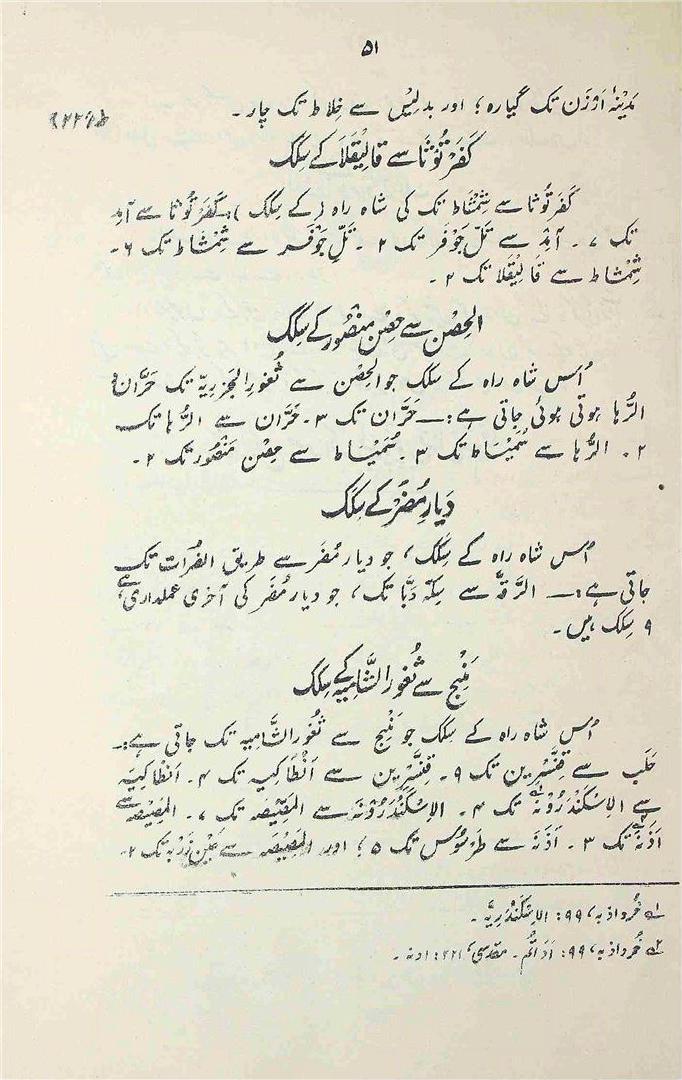 ۵۱
مَدِیْنَۂ اَرْزَن تک گیارہ؛ اور بدلِیْس سے خِلاط تک چار۔
ط۲۲۹
کَفَرْ تُوْثَا سے قَالِیْقَلَا کے سِکَک
کَفَر تُوْثا سے شِمْشَاط تک کی شاہ راہ (کے سِکَک):۔ کَفَر تُوْثا سے آمِد
تک ۷۔ آمِد سے تَلِّ جَوْفَر تک ۲۔ تَلِّ جَوْفَر سے شِمْشَاط تک ۶۔
شِمْشاط سے قَالِیْقَلا تک ۲۔
الحِصْن سے حِصْن مَنْصُوْر کے سِکَک
اُس شاہ راہ کے سِکَک جو الحِصْن سے ثُغُور الجَزرِیّہ تک حَرَّان و
الرُّہا ہوتی ہوئی جاتی ہے:۔— حَرَّان تک ۳۔ حَرَّان سے الرُّہا تک
۲۔ الرُّہا سے سُمَیْسَاط تک ۳۔ سُمَیْسَاط سے حِصْن مَنْصُور تک ۲۔
دَیارِ مُضَر کے سِکَک
اُس شاہ راہ کے سِکَک، جو دیار مُضَر سے طریق الفُرات تک
جاتی ہے:۔— الرَّقَّہ سے سِکّہ دَبَّا تک، جو دیار مُضَر کی آخری عملداری ہے،
۹ سِکَک ہیں۔
مَنْبِج سے ثُغُور الشَّامِیہ کے سِکَک
اُس شاہ راہ کے سِکَک جو مَنْبِج سے ثُغُور الشَّامیہ تک جاتی ہے:۔
حَلَب سے قِنَّسْرِین تک ۹۔ قِنَّسْرِین سے اَنْطَاکیہ تک ۴۔ اَنْطاکِیَہ
سے الاِسْکَنْدَرُوْنَہ تک ۴۔ الاِسْکَنْدَرُوْنَہ سے المَصِّیْصَہ تک ۷۔ المَصِیْصَہ سے
اَذَنَہ تک ۳۔ اَذَنَہ سے طَرَسُوْس تک ۵؛ اور المَصِیْصَہ سے عَیْن زَرْبَہ تک ۲۔
۱؎ خُرداذبہ، ۹۹: الاِسْکَنْدَرِیَّہ۔
۲؎ خُرداذبہ، ۹۹: مقدسی، ادنہ۔